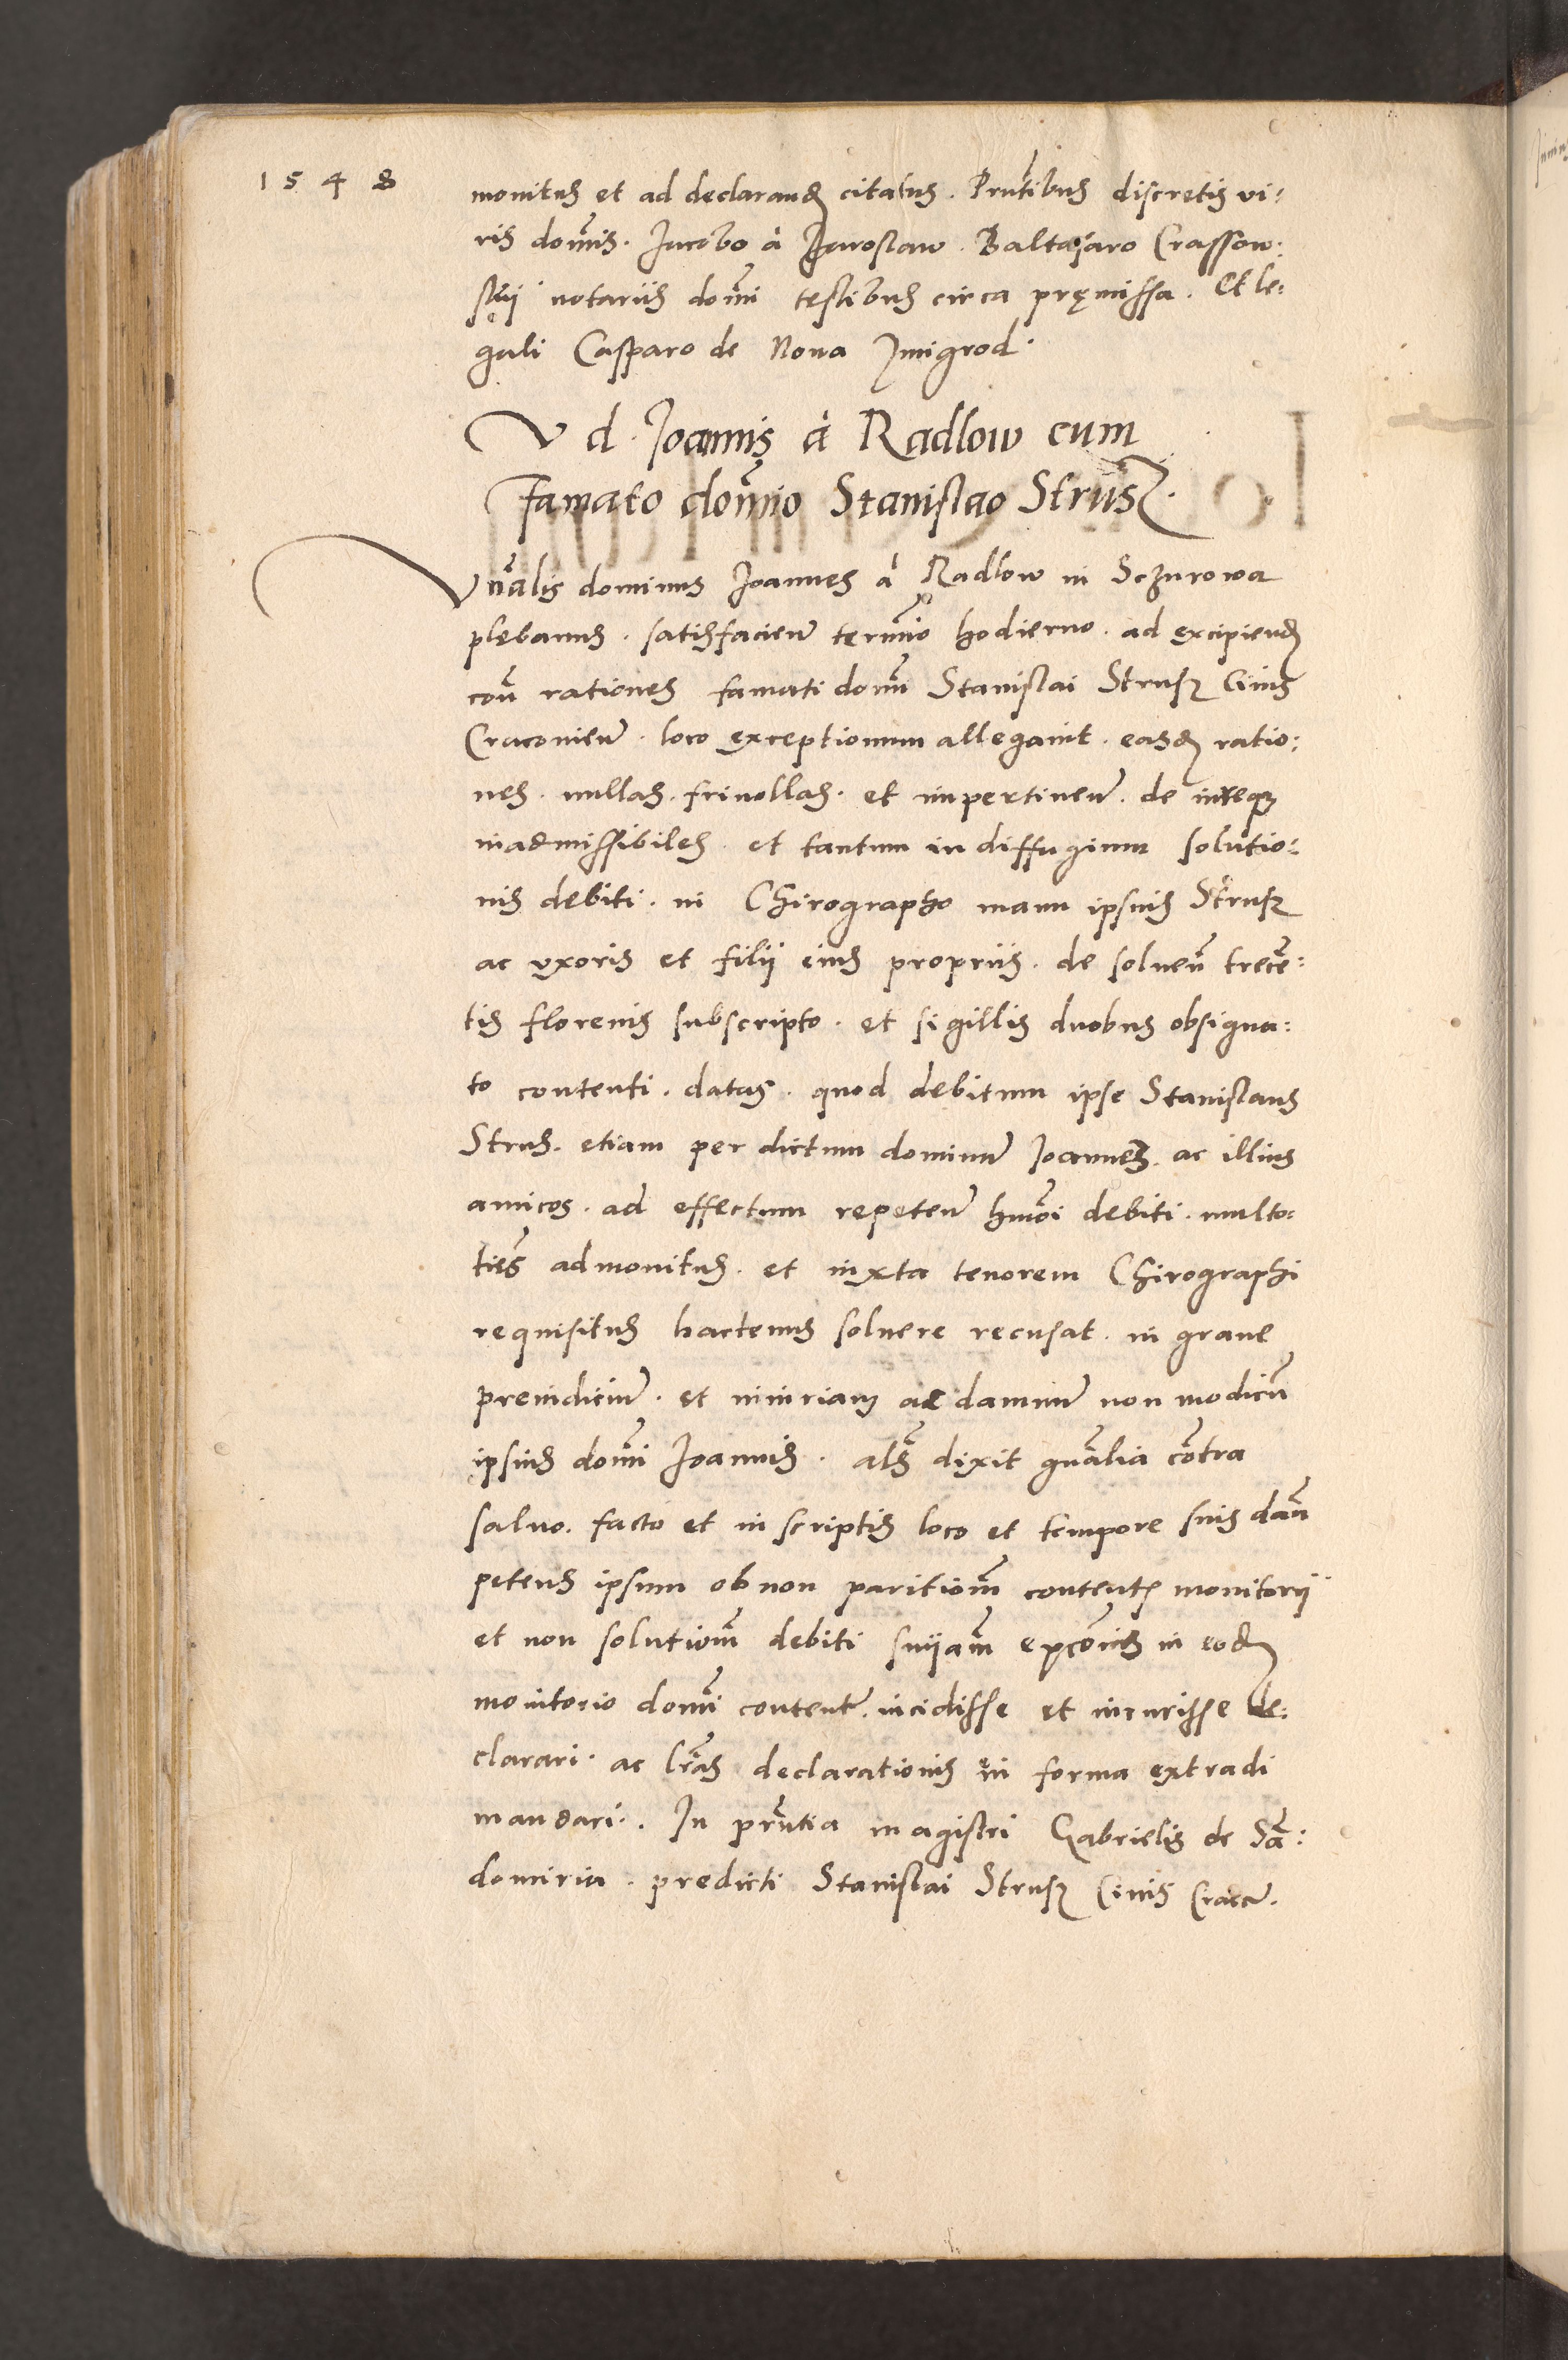 1548
monitus et ad declarand citatus. Prntibus discretis vi:
ris domis. Jacobo à Jaroslaw. Baltasaro Crassow:
skij notariis domi testibus circa pręmissa. Et le:
gali Casparo de Nova Zmigrod.
V d. Joannis à Radlow cum
Famato domio Stanislao Strusz.
Vnalis dominus Joannes à Radlow in Sczurowa
plebanus. satisfacien termio hodierno. ad excipiend
con rationes famati domi Stanislai Strusz civis
Cracovien. loco exceptionum allegavit. easd ratio:
nes. nullas. frivollas. et impertinen. de iureqz
inadmissibiles. et tantum in diffugium solutio:
nis debiti. in Chirographo manu ipsius Strusz
ac vxoris et filii eius propriis. de solven trece:
tis florenis subscripto. et sigillis duobus obsigna:
to contenti. datas. quod debitum ipse Stanislaus
Strus. etiam per dictum dominum Joannes. ac illius
amicos. ad effectum repeten hmoi debiti. multo:
ties admonitus. et iuxta tenorem Chirographi
requisitus hactenus solvere recusat. in grave
preiudicium. et iniuriam ac damnum non modicu
ipsius domi Joannis. als dixit gnalia contra
salvo. facto et in scriptis loco et tempore suis dan
petens ipsum ob non paritiom content monitorij
et non solutiom debiti sniam exconis in eod
monitorio domi content. incidisse et incurisse de:
clarari. ac lras declarationis in forma extradi
mandari. In prntia magistri Gabrielis de Sa:
domiria. predicti Stanislai Strusz Civis Cracn.